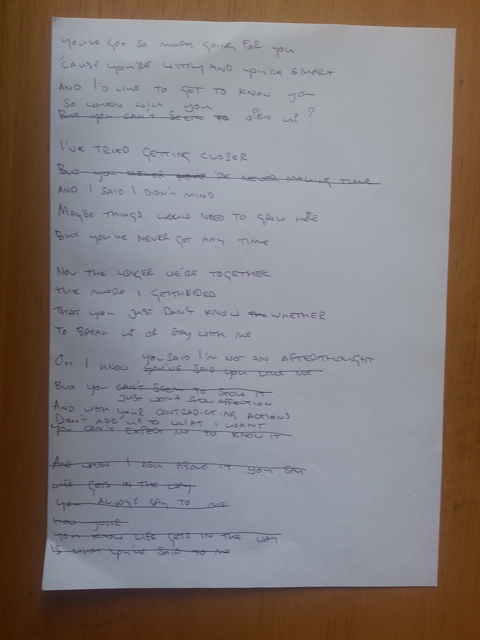 YOU'VE GOT SO MUCH GOING FOR YOU
'CAUSE YOU'RE WITTY AND YOU'RE SMART
AND I'D LIKE TO GET TO KNOW YOU
SO WHEN WILL YOU
BUT YOU CAN'T SEEM TO OPEN UP?
I'VE TRIED GETTING CLOSER
BUT YOU NEVER 'RE NEVER MAKING TIME
AND I SAID I DIDN'T MIND
MAYBE THINGS WOULD NEED TO GROW HERE
BUT YOU'VE NEVER GOT ANY TIME
NOW THE LONGER WE'RE TOGETHER
THE MORE I GET
THAT YOU JUST DON'T KNOW WHETHER
TO BREAK UP OR STAY WITH ME
YOU SAID I'M NOT AN AFTERTHOUGHT
OH I KNOW YOU'VE SAID YOU LIKE ME
BUT YOU CAN'T SEEM TO SHOW IT
JUST WON'T SHOW AFFECTION
AND WITH YOUR CONTRADICTING ACTIONS
DON'T ADD UP TO WHAT I WANT
YOU CAN'T EXPECT ME TO KNOW IT
AND WHEN I ASK ABOUT IT YOU SAY
LIFE GETS IN THE WAY
YOU ALWAYS SAY TO ME
YOU KNOW LIFE GETS IN THE WAY
IS WHAT YOU'VE SAID TO ME